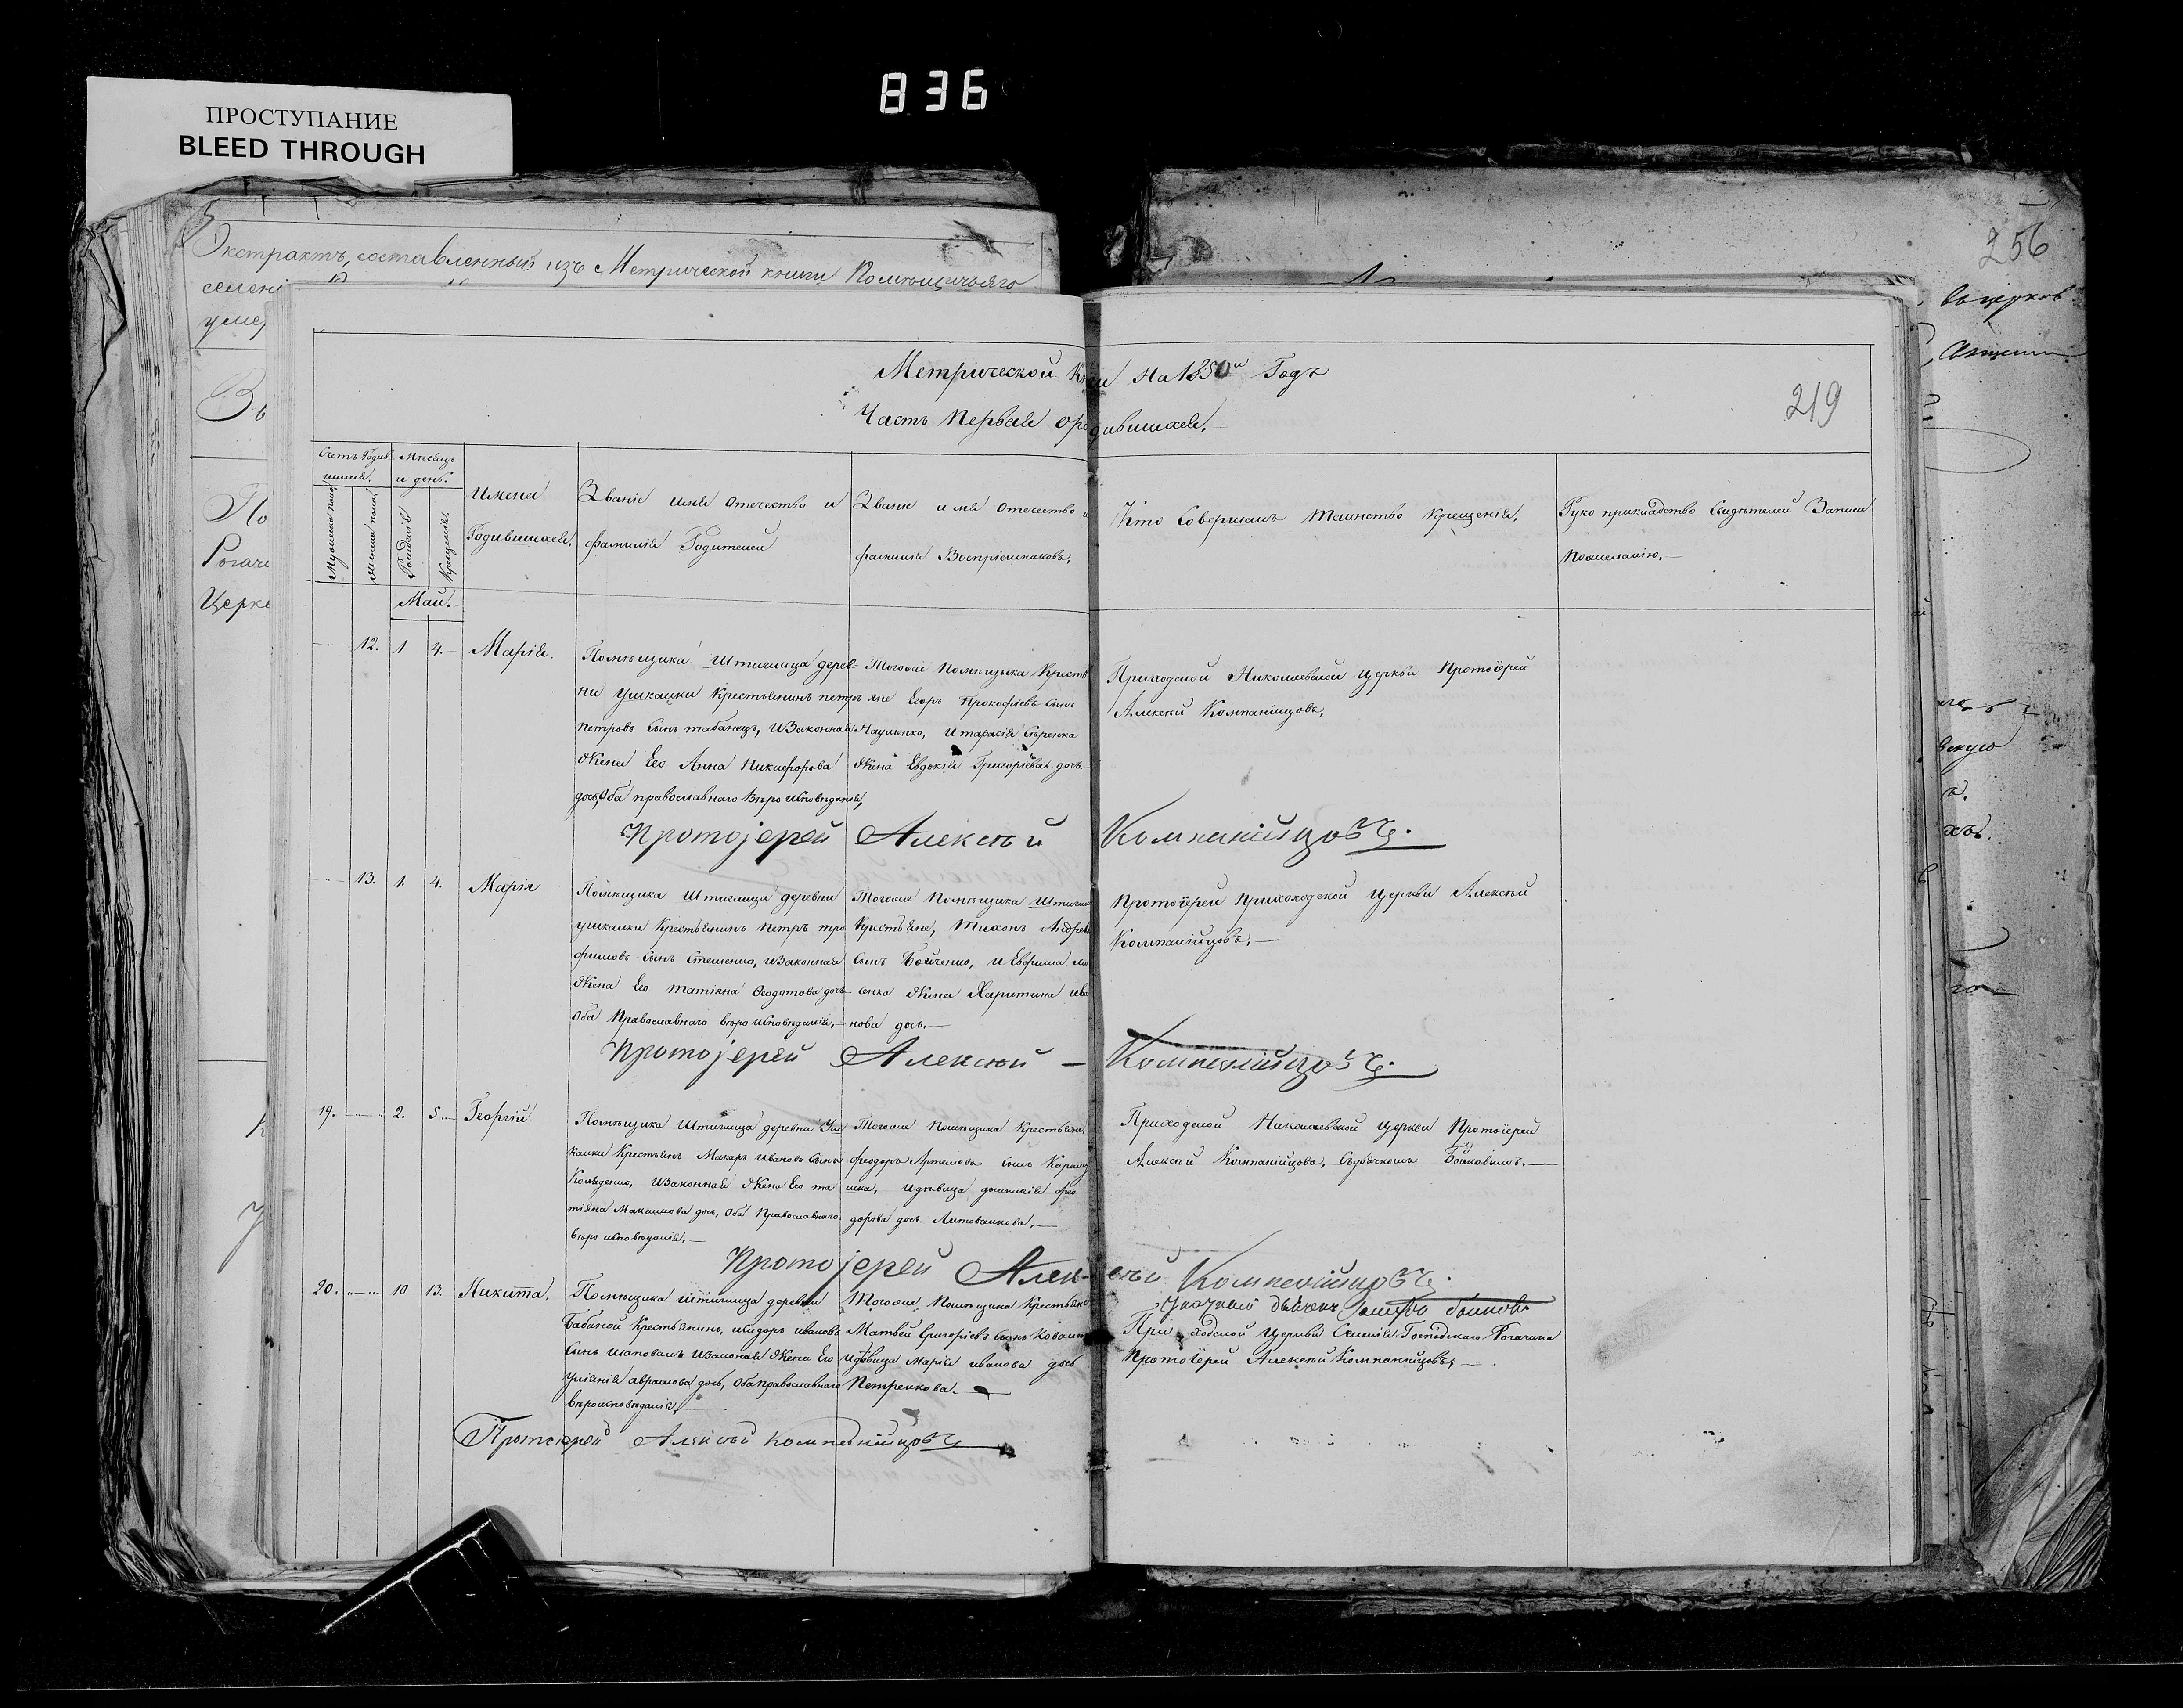 836
ПРОСТУПАНИЕ
BLEED THROUGH
256
Экстрактъ, составленный изъ Метрической книги Помѣщичьяго
селені
умер
Въ
По
Рогаче
Церкв
Метрической Книги На 1850й Годъ
219
Часть Первая о родившихся.
Счетъ Родив
шихся.
Мѣсяцъ
и день.
Мужеска пола
Женска пола
Рожденія
Крещенія.
Имена
Родившихся.
Званіе имя отечество и
фамилія Родителей
Званіе имя отечество и
фамилія Воспріемниковъ.
Кто Совершалъ Таинство Крещенія.
Руко прикладство Свидѣтелей Записи
по желанію.
Май.
12. 1 4. Марія.
Помѣщика Штиглица дерев-
ни Ушкалки Крестьянинъ петръ
петровъ сынъ табанецъ, И Законная
Жена Его Анна Никифорова
дочь, Оба православнаго Вѣроисповѣданія,
Тогоже Помѣщика Кресть
яне Егоръ Прокофіевъ сынъ
Науменко, И тарасія
Жена Евдокія Григоріева дочь.
Приходской Николаевской Церкви Протоіерей
Алексѣй Компанійцовъ,
Протоjерей Алексѣй Компанійцовъ.
13. 1. 4. Марія
Помѣщика Штиглица деревни
ушкалки Крестьянинъ Петръ тро
фимовъ сынъ Стешенко, И Законная
Жена Его татіяна Феодотова дочь
Оба Православнаго вѣроисповѣданія,
Тогоже Помѣщика Штигли
Крестьяне, Тихонъ Андрее
сынъ Бойченко, И Евфима
Жена Харитина Ива
нова дочь.
Протоіерей Приходской Церкви Алексѣй
Компанійцовъ,
Протоjерей Алексѣй Компанійцовъ.
19. 2. 5. Георгій
Помѣщика Штиглица деревни Уш
калки Крестьянъ Макаръ Ивановъ Сынъ
И Законная Жена Его та
тіяна Максимова дочь, Оба Православнаго
вѣроисповѣданія,
Тогоже Помѣщика Крестьяне,
феодоръ Артемовъ сынъ
И дѣвица фео
дорова дочь Литовликова,
Приходской Николаевской Церкви Протоіерей
Алексѣй Компанійцовъ, Съ дьячкомъ
Протоjерей Алексѣй Компанійцовъ.
20. 10 13. Никита.
Помѣщика Штиглица деревни
Бабиной Крестьянинъ, Исидоръ Ивановъ
Сынъ Шаповалъ И Законная Жена Его
Уліянія Аврамова дочь, Оба православнаго
вѣроисповѣданія,
Тогоже Помѣщика Крестьяне
Матвѣй Григоріевъ сынъ
И дѣвица Марія Иванова дочь
Петренкова.
Приходской Церкви Селенія Господскаго Рогачика
Протоіерей Алексѣй Компанійцовъ,
Протоіерей Алексѣй Компанійцовъ